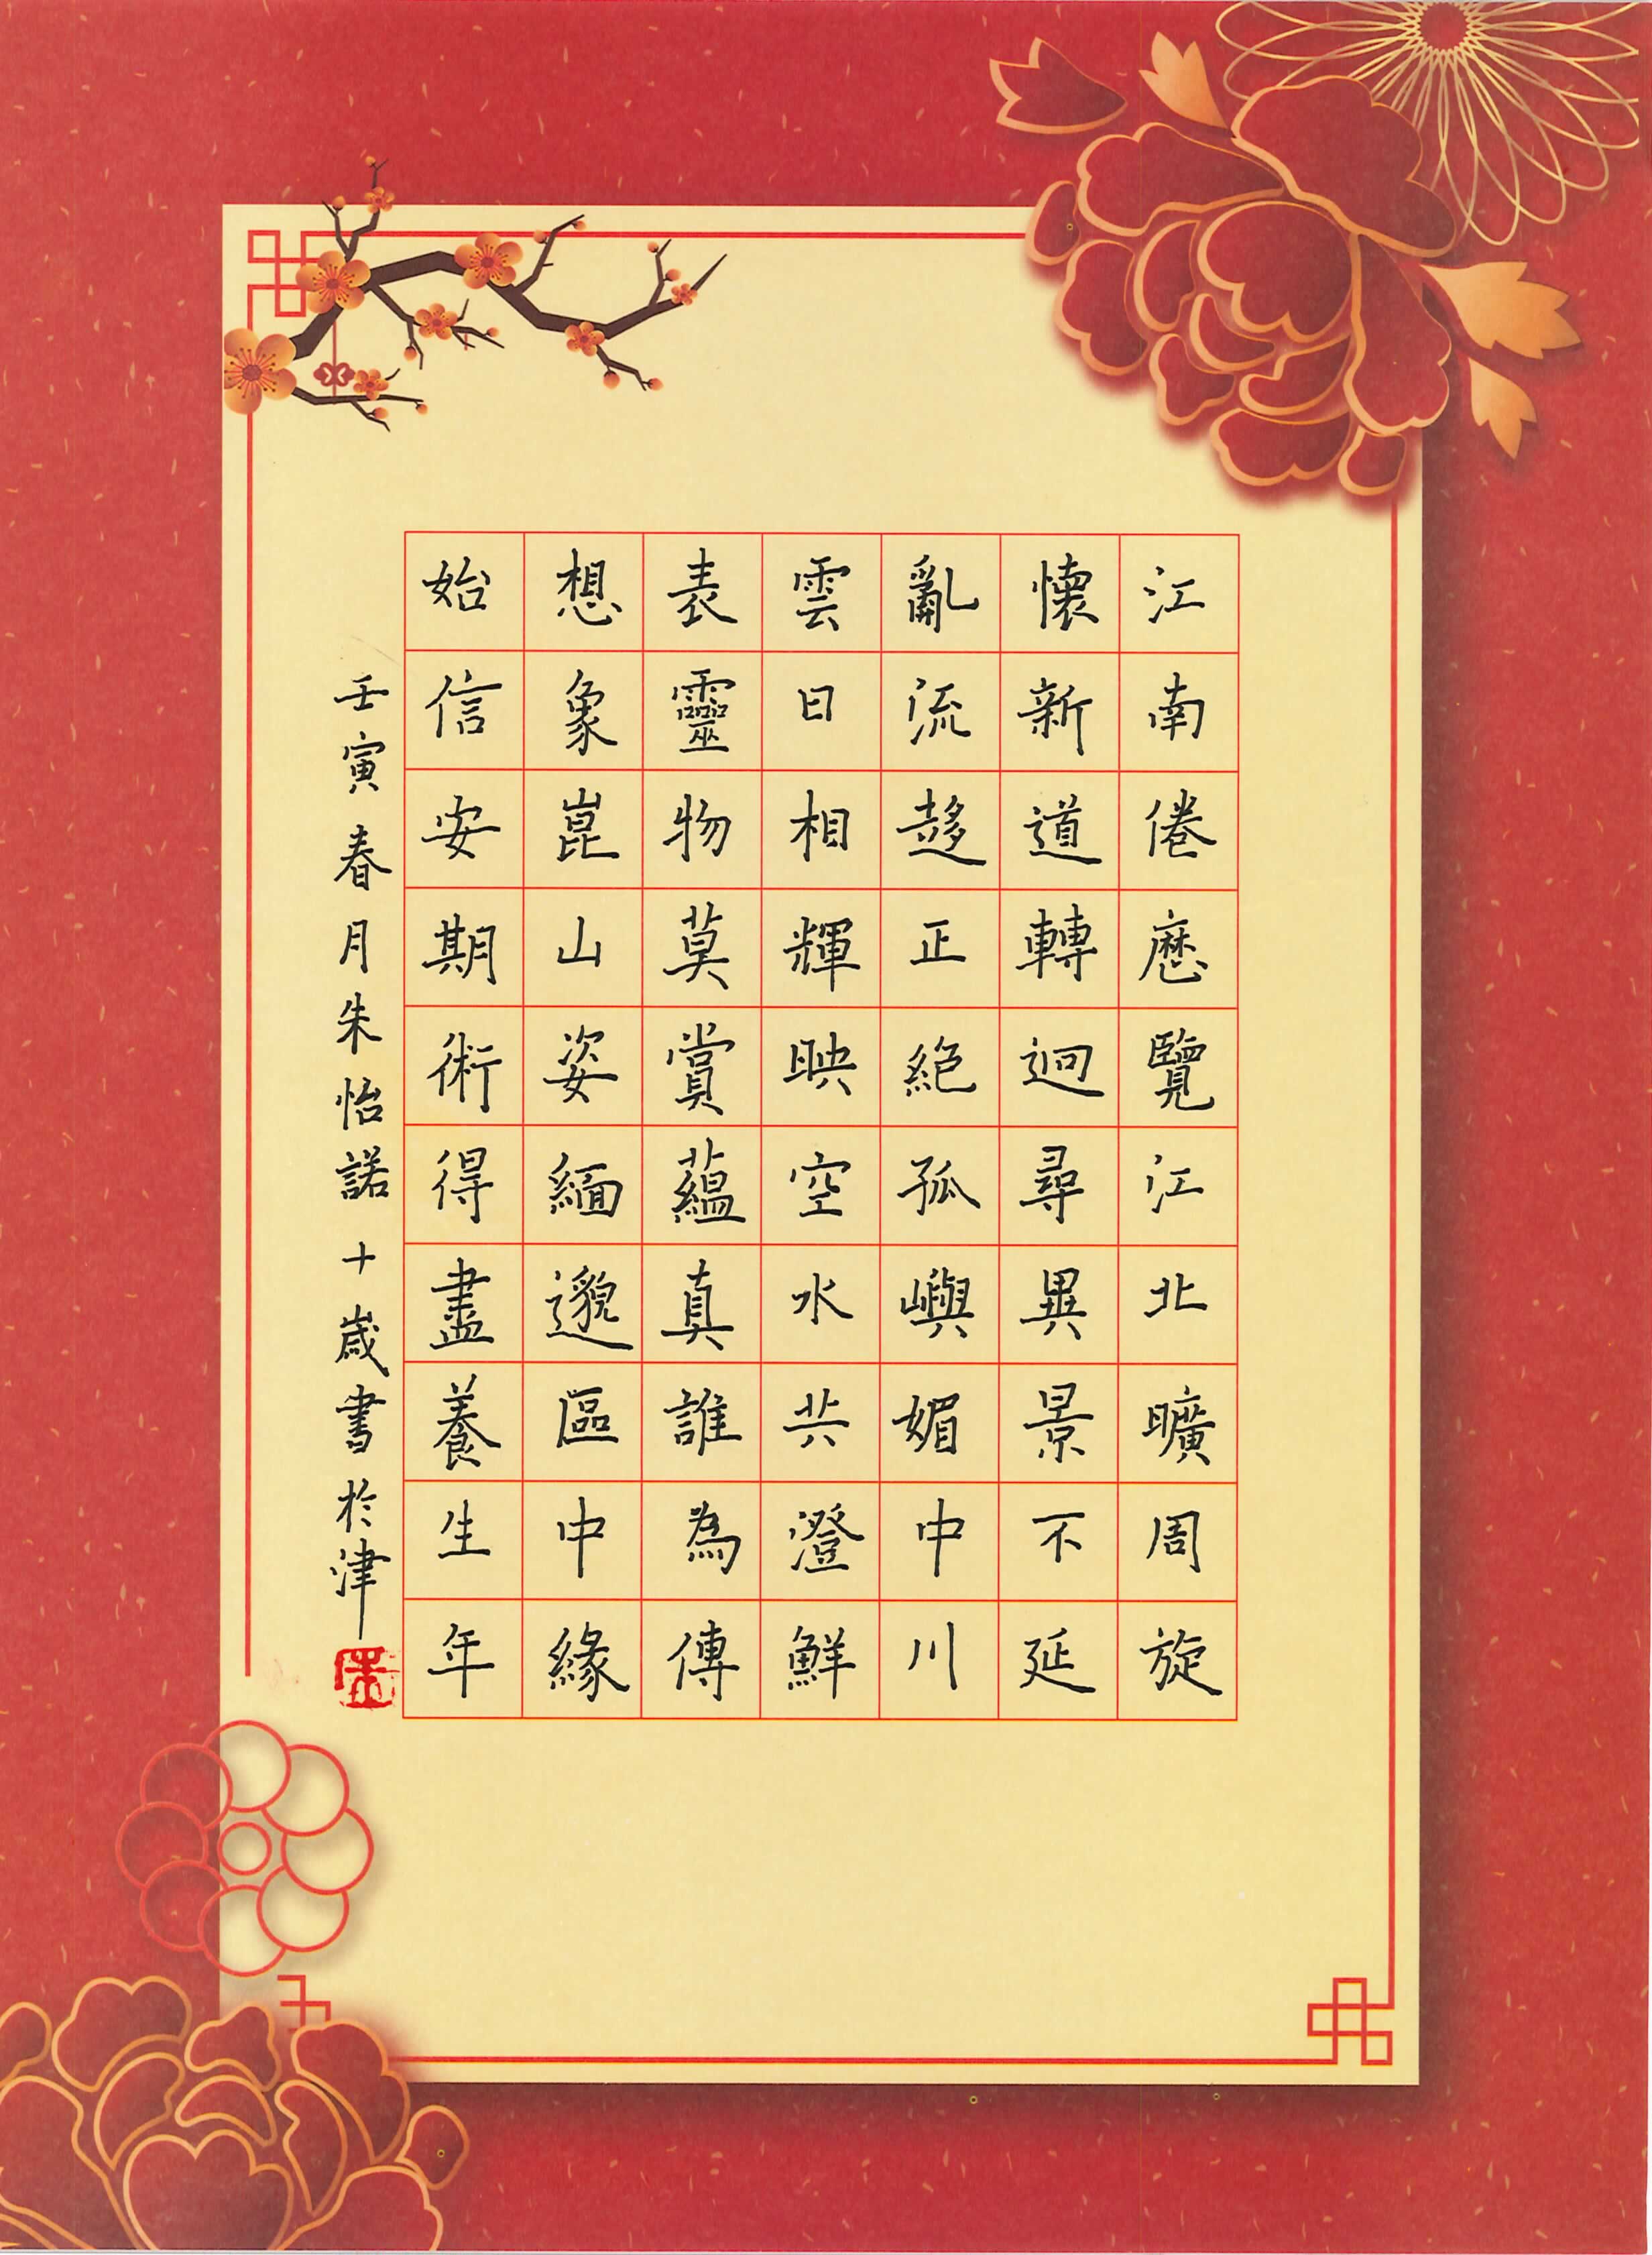 江南倦歷覽江北曠周旋
懷新道轉迥尋異景不延
亂流趍正絕孤嶼媚中川
雲日相輝映空水共澄鮮
表靈物莫賞蘊真誰為傳
想象崑山姿緬邈區中緣
始信安期術得盡養生年
壬寅春月朱怡諾十歲書於津
朱